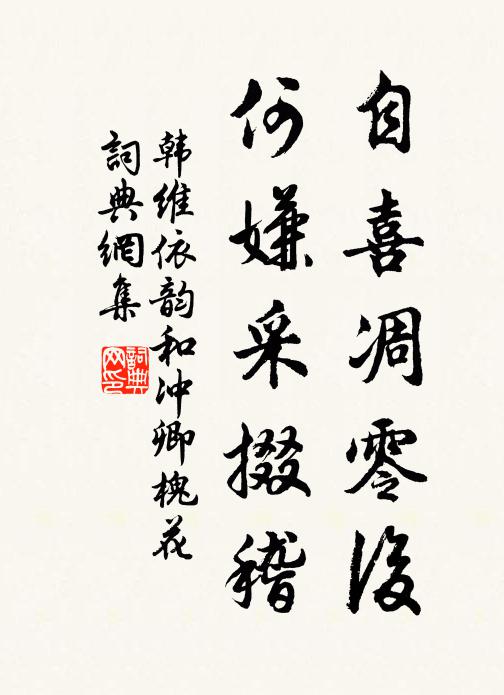 自喜凋零後
何嫌采掇稽
韩維依韵和冲卿槐花
詞典網集
詞典网印